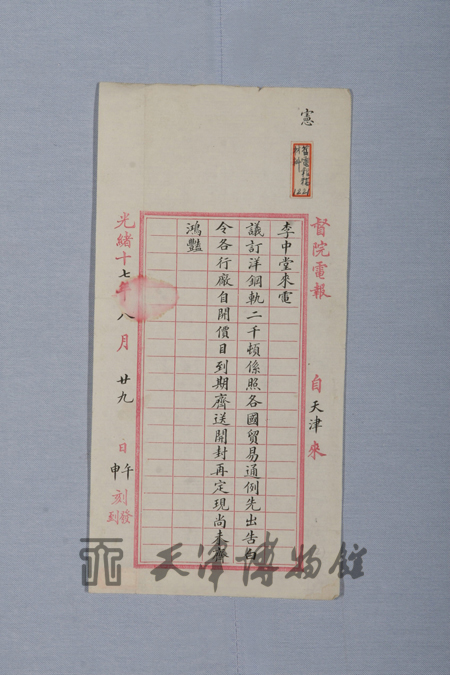 憲
督院電報 自天津來
李中堂來電
議訂洋鋼軌二千頓係照各國貿易通例先出告白
令各行廠自開價目到期齊送開封再定現尚未
鴻豔
光緒十七年八月廿九日午刻發
申 到
天津博物館